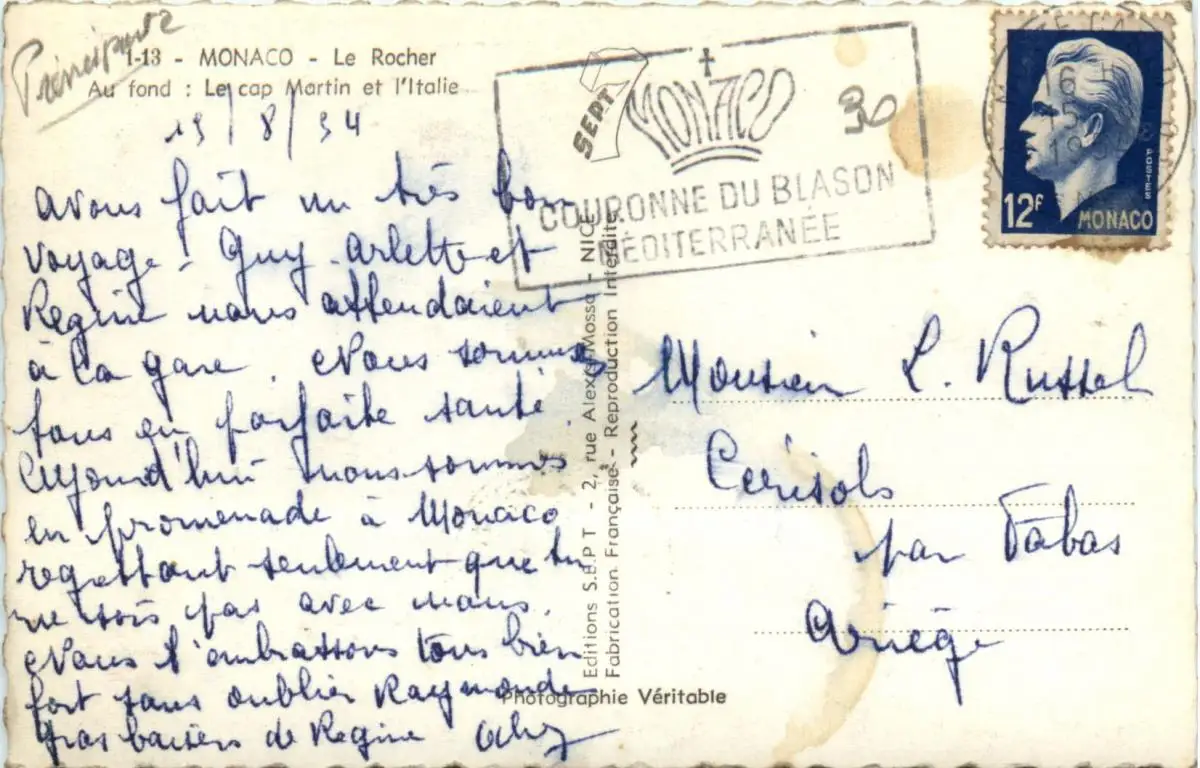 Principauté
1-13 - MONACO - Le Rocher
Au fond : Le cap Martin et l'Italie
19/8/54
avons fait un très bon
voyage - Guy - Arlette et
Regine nous attendaient
à la gare. Nous sommes
tous en parfaite santé
Aujourd'hui nous sommes
en promenade à Monaco
regettant seulement que tu
ne sois pas avec nous.
Nous t'embrassons tous bien
fort sans oublier Raymonde
Gros baisers de Regine
SEPT 7 MONACO
COURONNE DU BLASON
MÉDITERRANÉE
30
12F
POSTES
MONACO
Editions S.E.P.T - 2, rue Alexis Mossa - NICE
Fabrication Française - Reproduction Interdite
Monsieur L. Russel
Cérisols
par Fabas
Ariège
Photographie Véritable